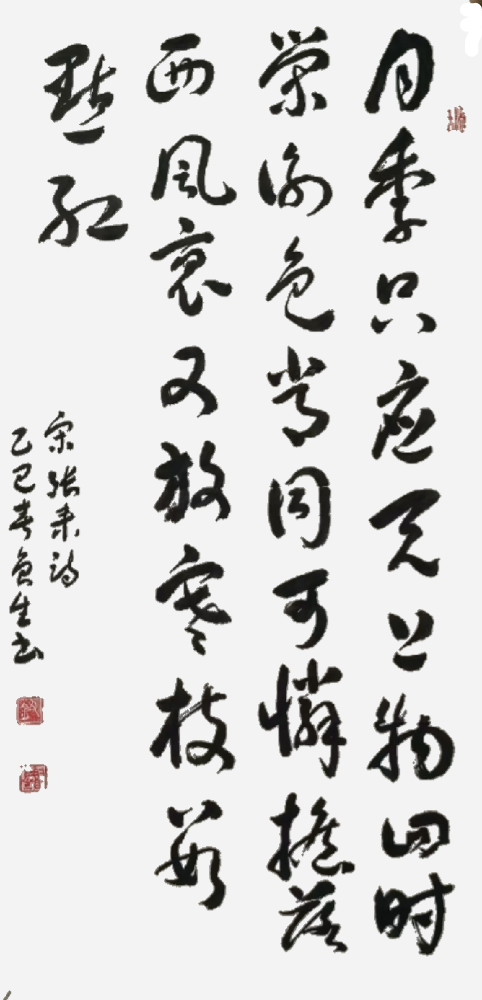 月季只应天上物四时
荣谢色常同可憐摇落
西风裏又放寒枝数
點红
宋张耒诗
乙巳春生书